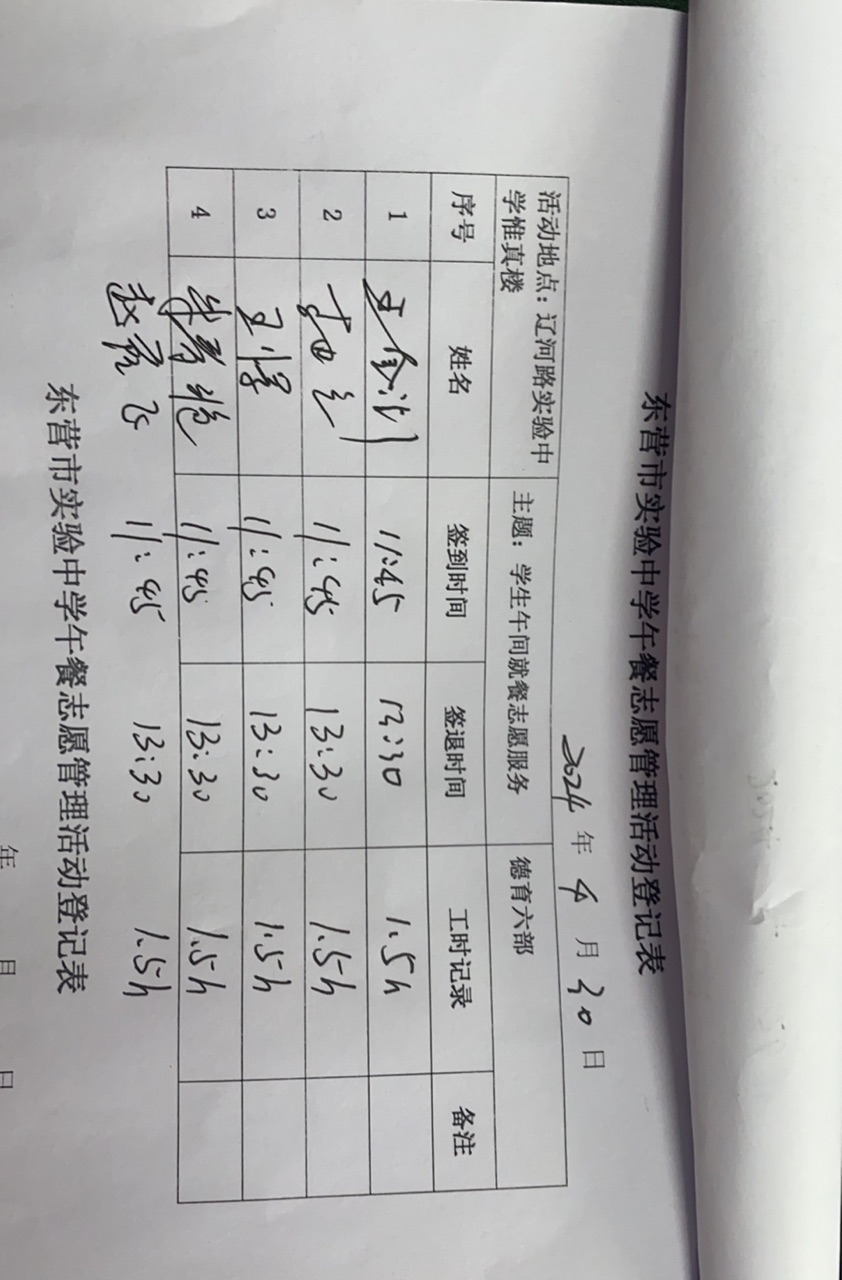 东营市实验中学午餐志愿管理活动登记表
2024 年 4 月 30 日
活动地点：辽河路实验中学惟真楼 主题：学生午间就餐志愿服务 德育六部
序号 姓名 签到时间 签退时间 工时记录 备注
1 11:45 13:30 1.5h
2 11:45 13:30 1.5h
3 11:45 13:30 1.5h
4 11:45 13:30 1.5h
11:45 13:30 1.5h
东营市实验中学午餐志愿管理活动登记表
年 月 日